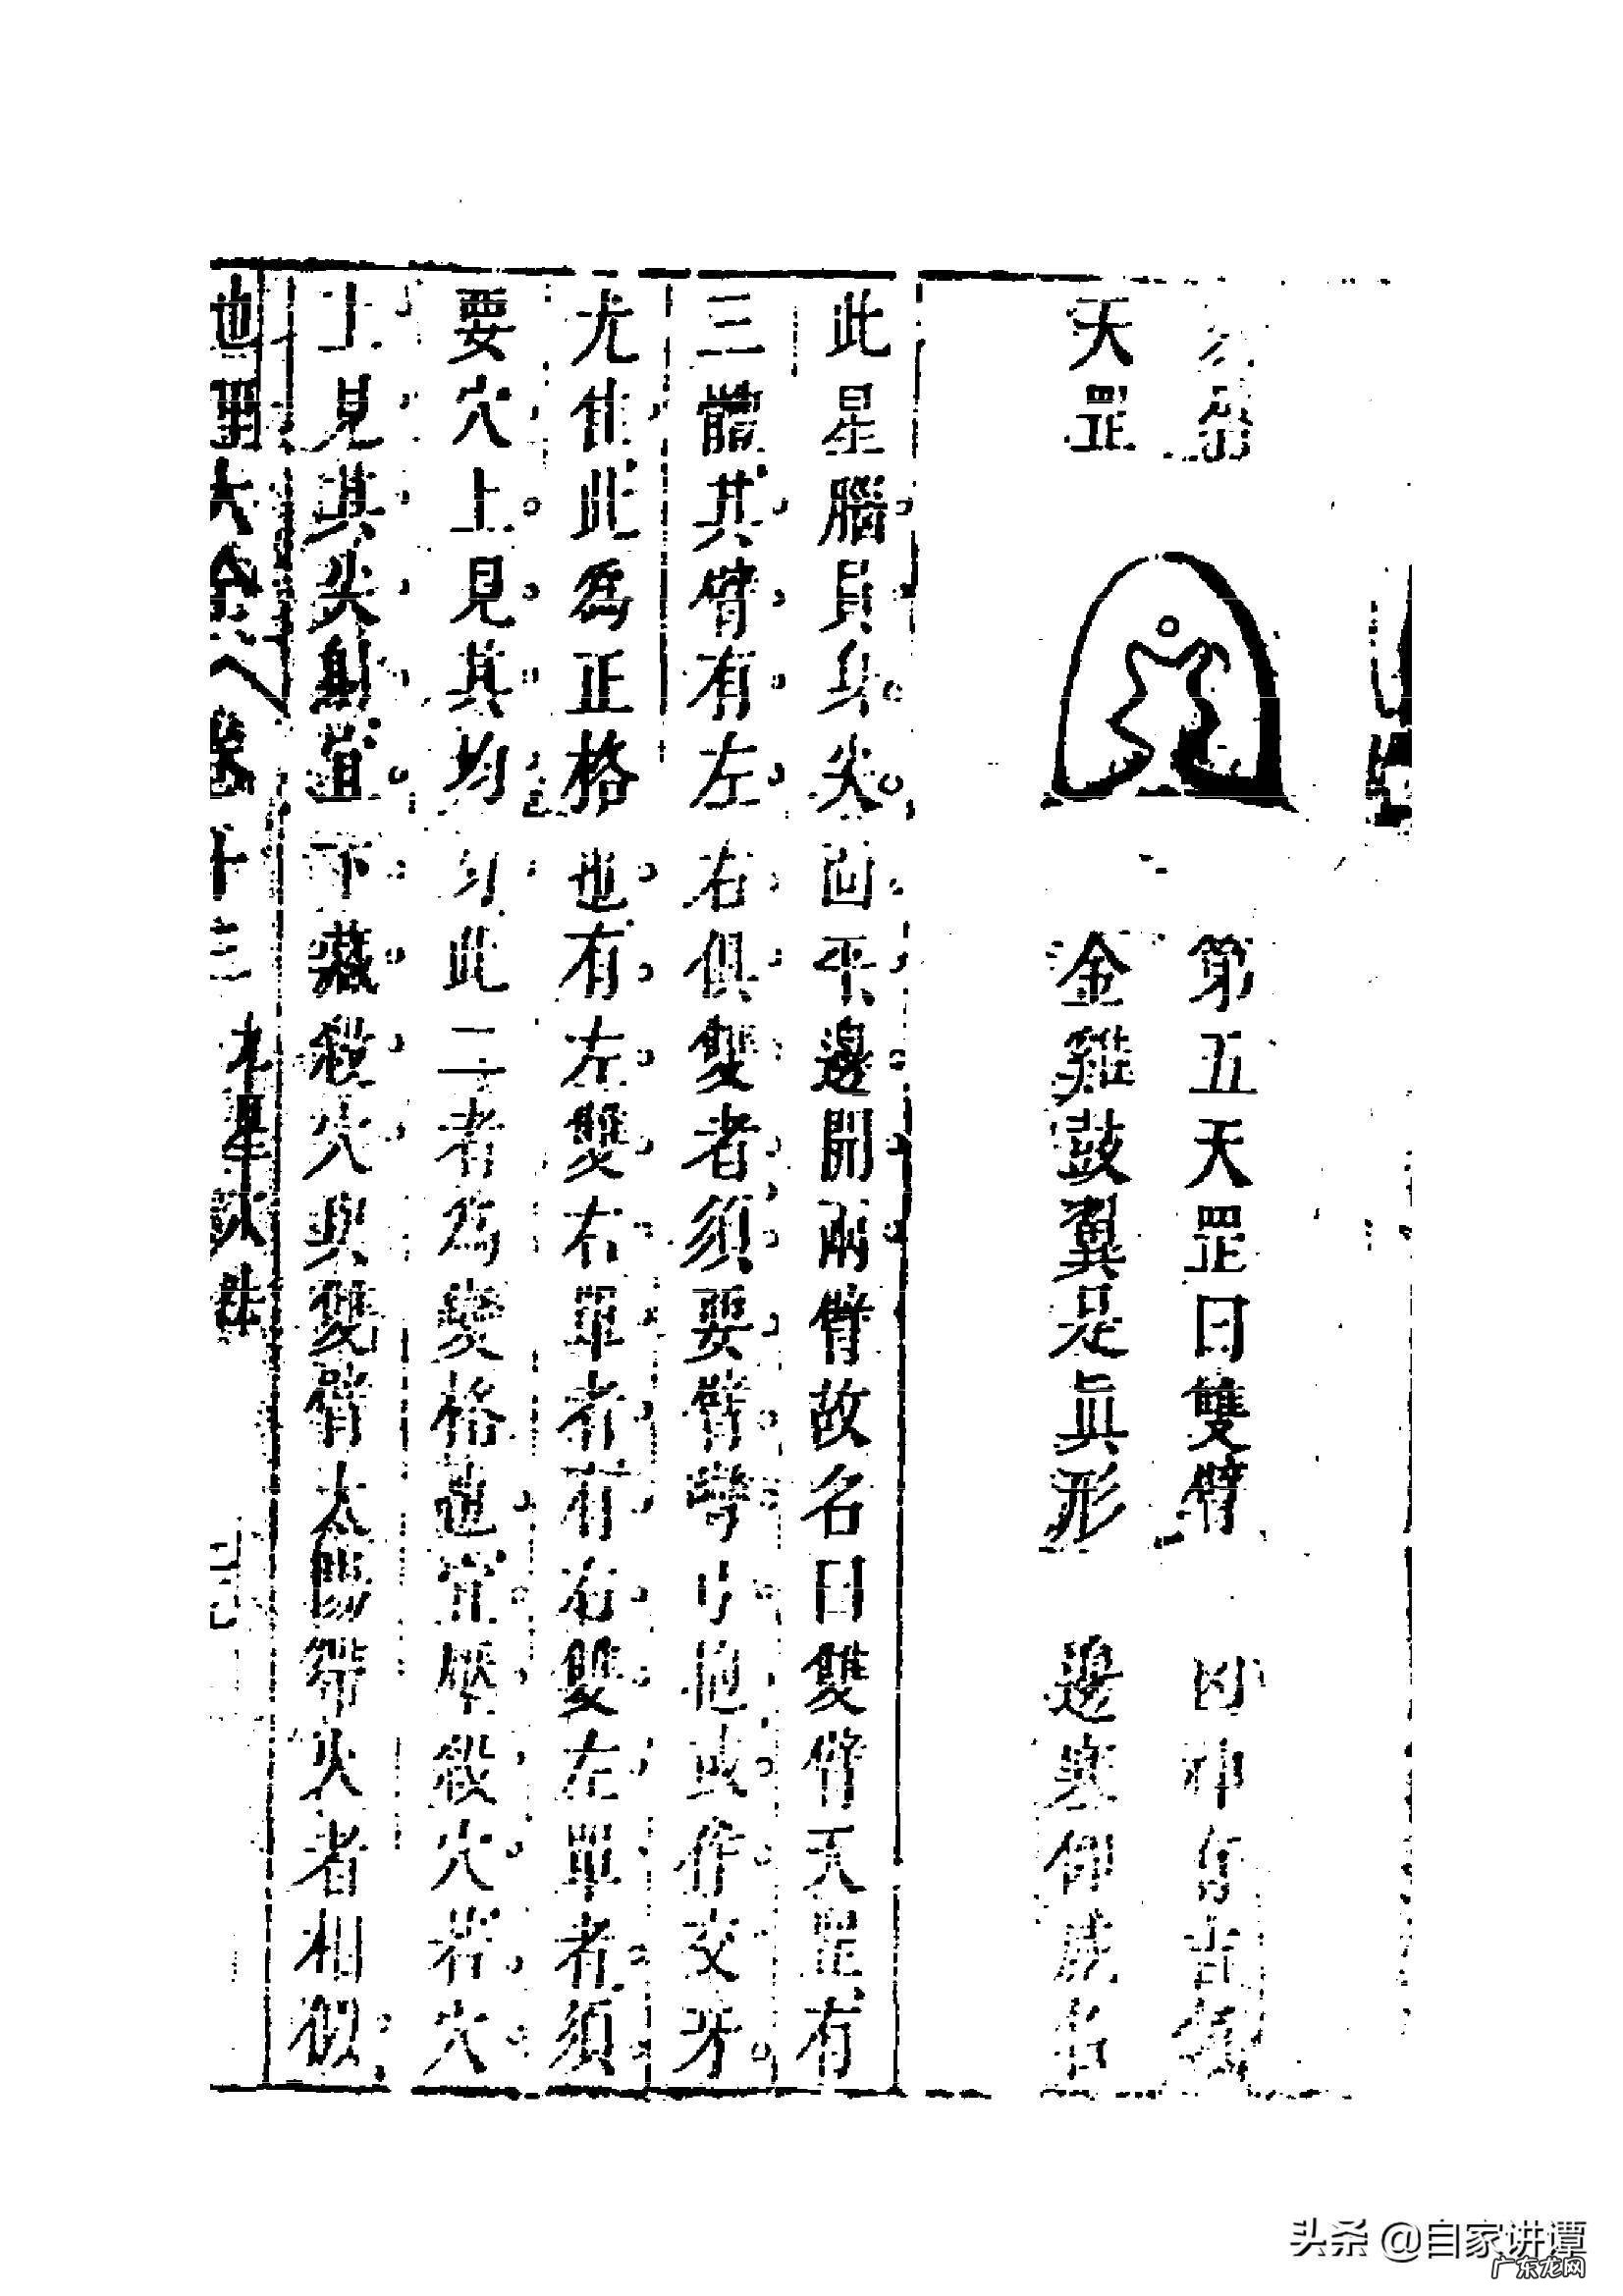 天罡
第五天罡曰雙臂
金雞鼓翼是眞形
此星腦員身尖面平邊開兩臂故名曰雙臂天罡有
三體其臂有左右俱雙者須要臂彎弓抱或作交牙
尤佳此為正格也有左雙右單者有右雙左單者須
要穴上見其均勻此二者為變格也宜壓殺穴若穴
上見其尖射宜下藏殺穴與雙臂太陽帶火者相似
地理大全 卷十三 九星
头条 @自家讲谭
广东龙网